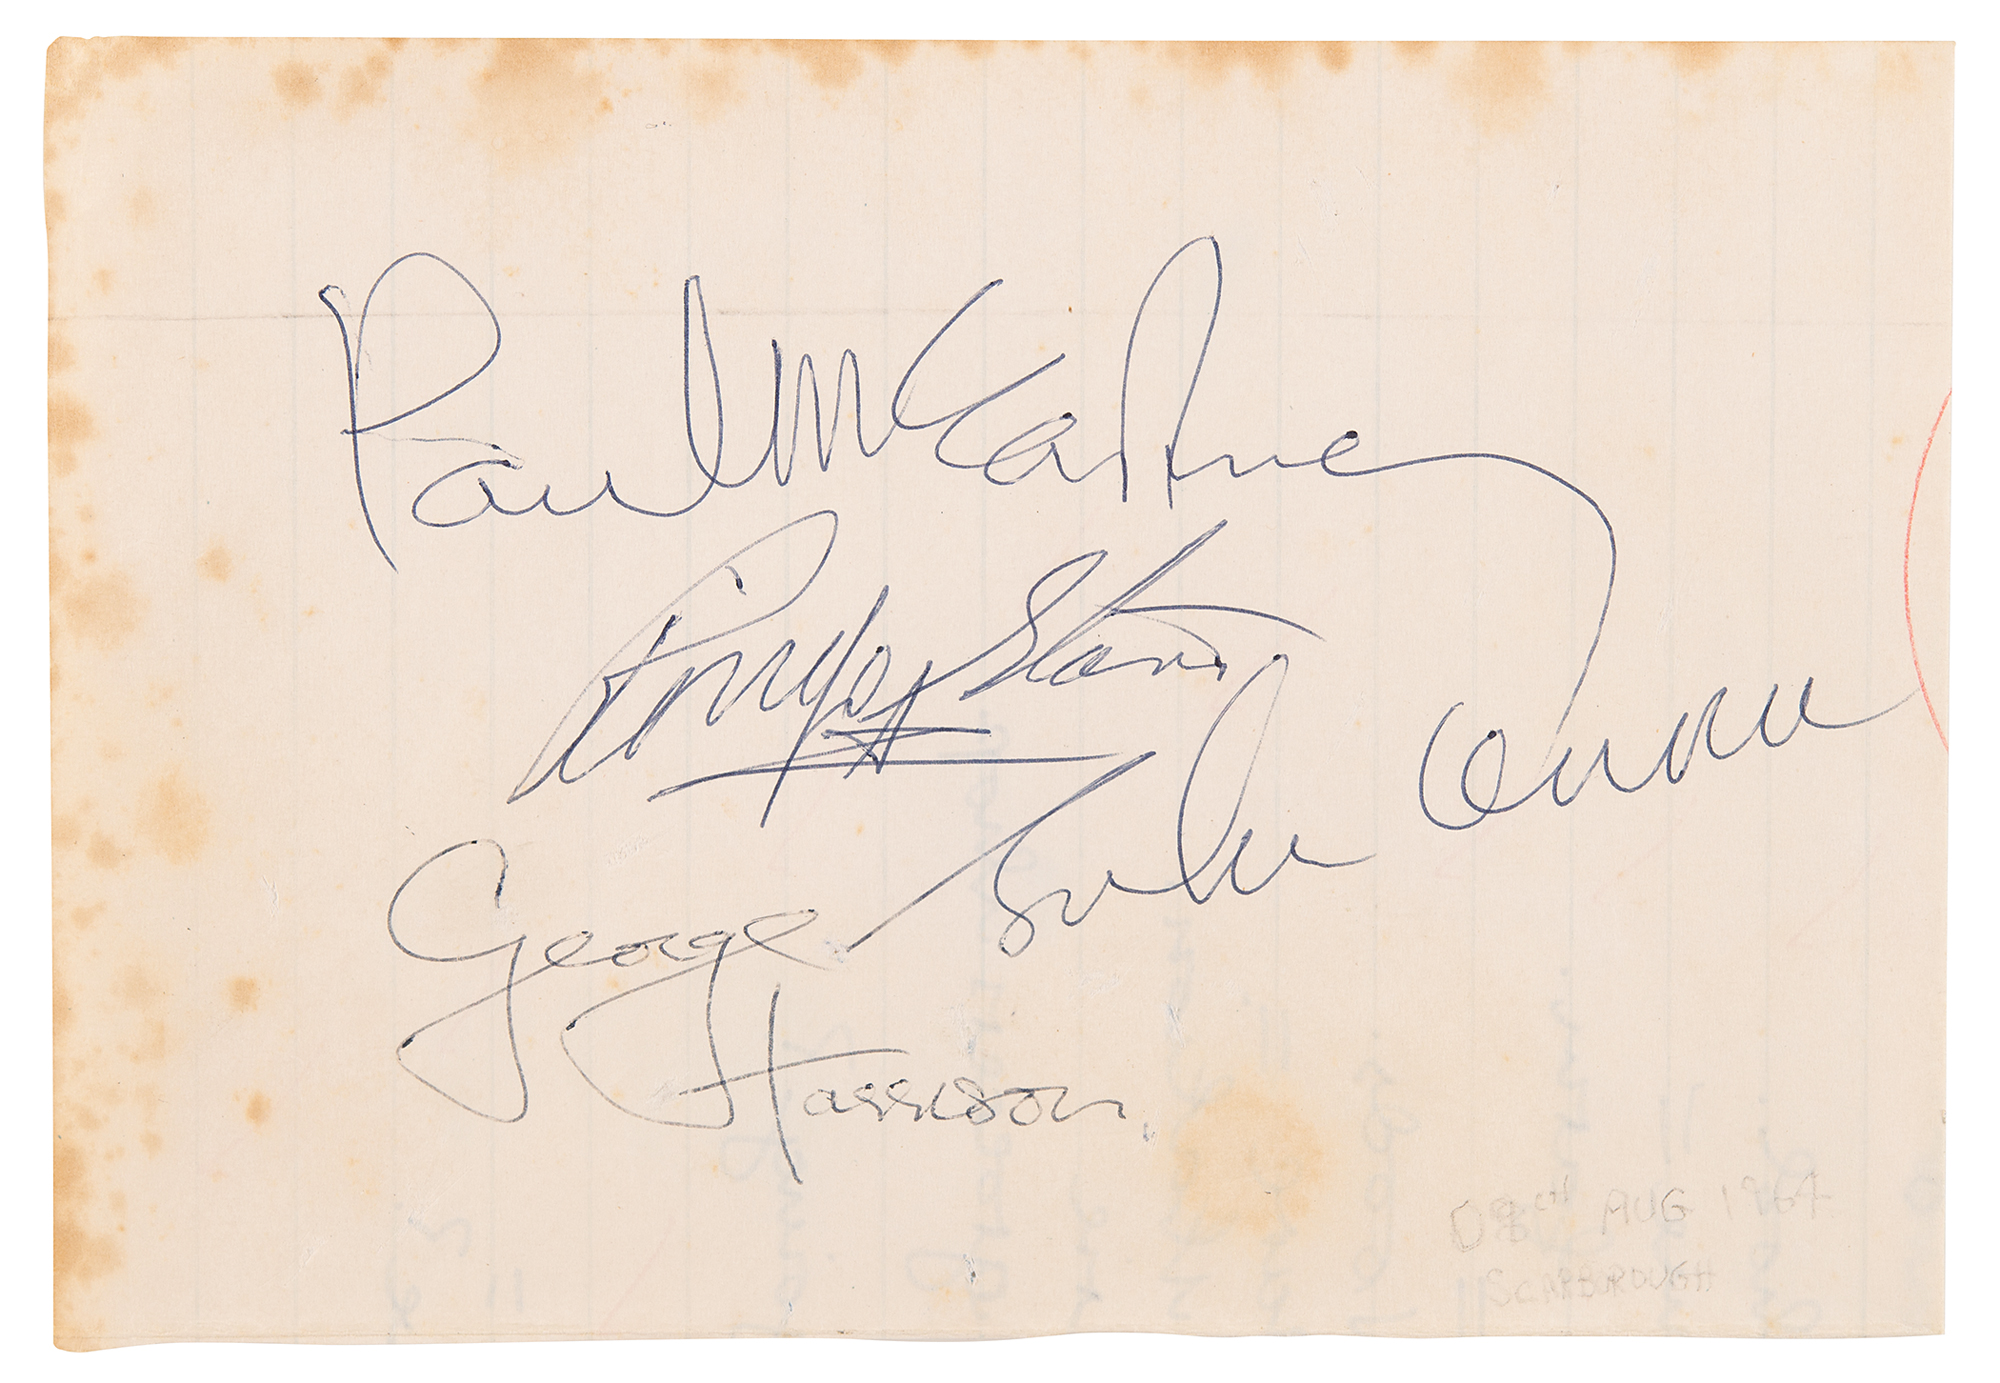 Paul McCartney
Ringo Starr
John Lennon
George
Harrison
AUG 1964
SCARBOROUGH